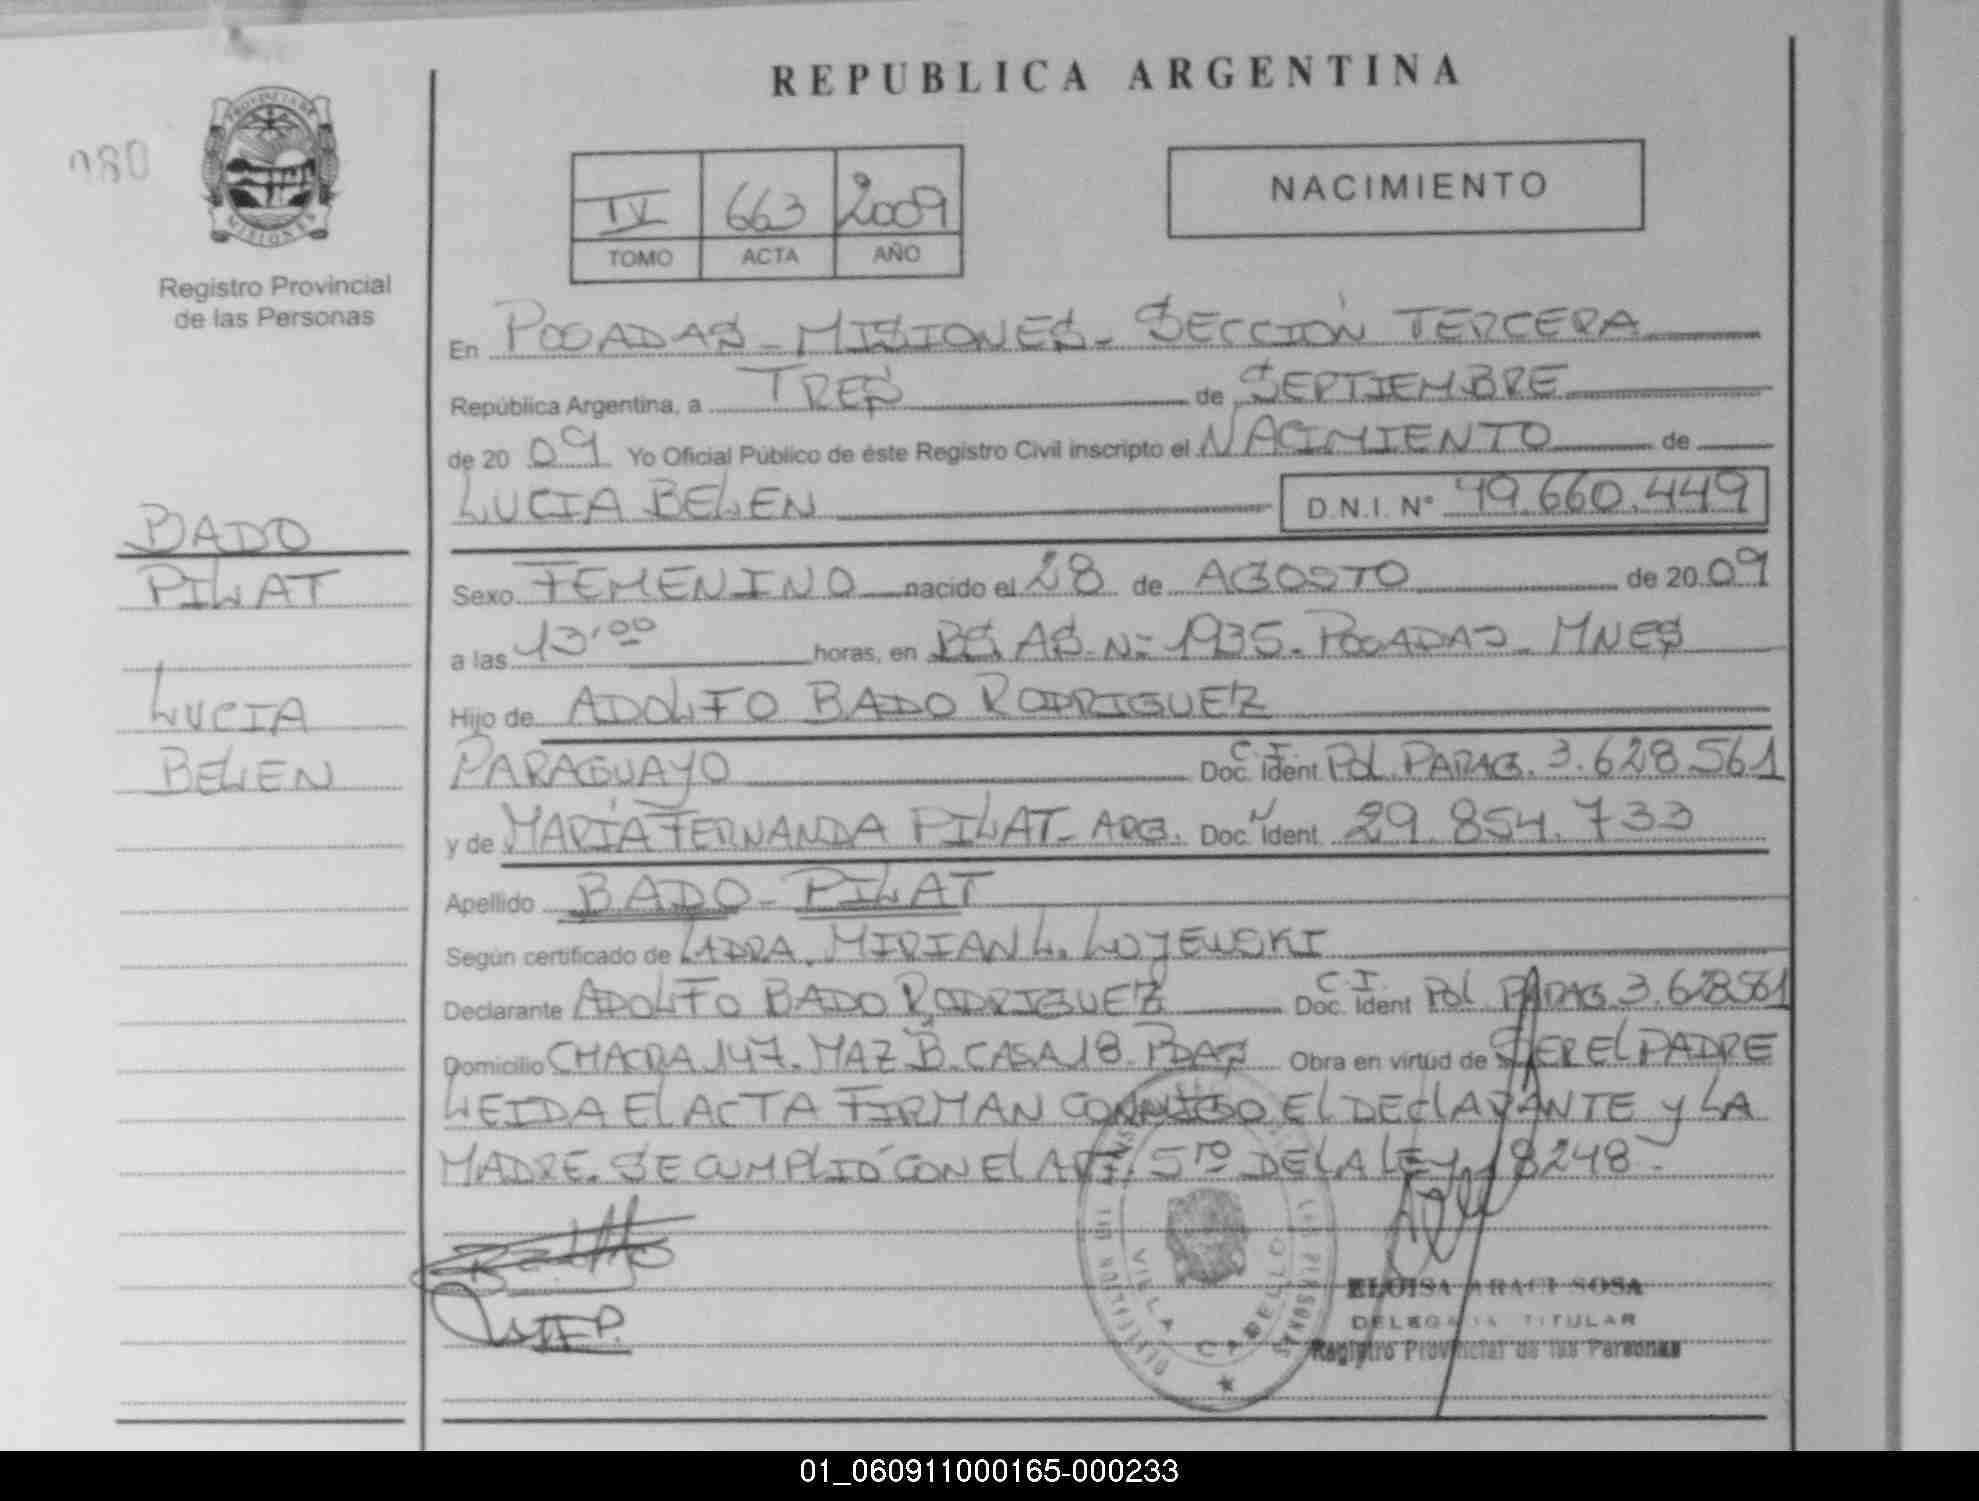 REPUBLICA ARGENTINA
080
PROVINCIA DE
MISIONES
Registro Provincial
de las Personas
IV 663 2009
TOMO ACTA AÑO
NACIMIENTO
En POSADAS - MISIONES - SECCIÓN TERCERA
República Argentina, a TRES de SEPTIEMBRE
de 20 09 Yo Oficial Público de éste Registro Civil inscripto el NACIMIENTO de
LUCIA BELEN D.N.I. N° 49.660.449
BADO
PILAT
LUCIA
BELEN
Sexo FEMENINO nacido el 28 de AGOSTO de 20 09
a las 13,00 horas, en BS. AS. N= 1935 - POSADAS - MNES
Hijo de ADOLFO BADO RODRIGUEZ
PARAGUAYO C.I. Doc. Ident. Pol. PARAG. 3.628.561
y de MARÍA FERNANDA PILAT - ARG. Doc. N Ident. 29.854.733
Apellido BADO - PILAT
Según certificado de LADRA. MIRIAN L. LUJEWSKI
Declarante ADOLFO BADO RODRIGUEZ C.I. Doc. Ident Pol. PARAG 3.628.561
Domicilio CHACRA 147. MAZ B. CASA 18. PDAS Obra en virtud de SER EL PADRE
LEIDA El ACTA FIRMAN CONMIGO El DEClARANTE y LA
MADRE. SE CUMPLIÓ CON El ART. 5TO DE LA LEY 18248 -
VILLA CABELLO
ELOISA ARACI SOSA
DELEGADA TITULAR
Registro Provincial de las Personas
01_060911000165-000233